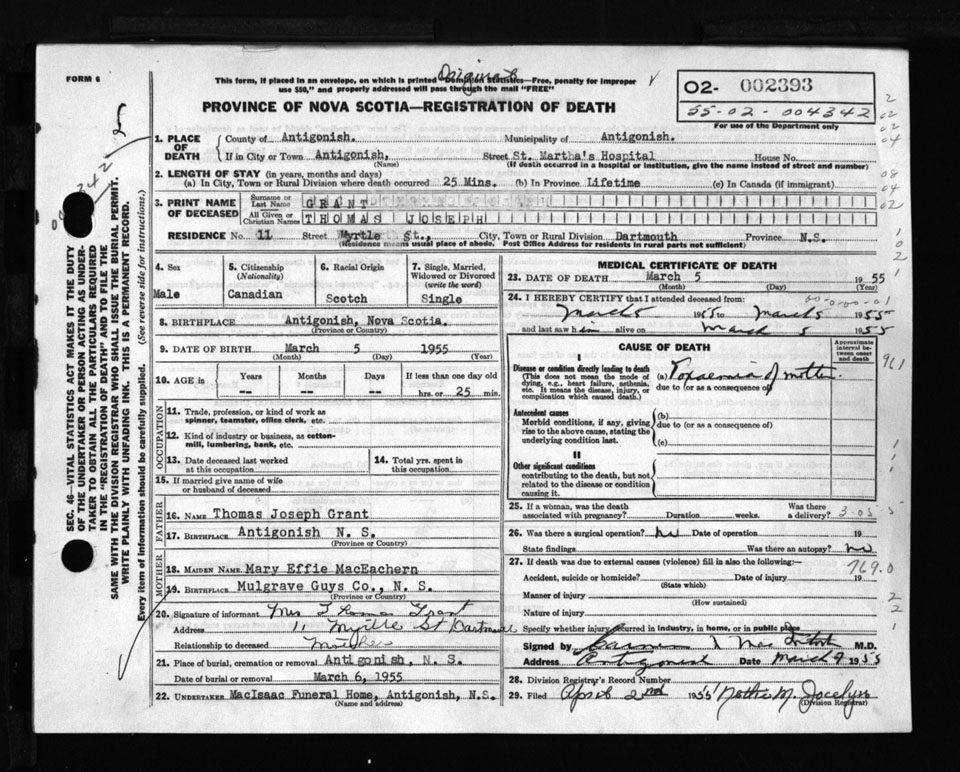 FORM 6
Original
This form, if placed in an envelope, on which is printed "Dominion Statistics—Free, penalty for improper
use $50," and properly addressed will pass through the mail "FREE"
PROVINCE OF NOVA SCOTIA—REGISTRATION OF DEATH
02- 002393
55-02-004342
For use of the Department only
SEC. 46—VITAL STATISTICS ACT MAKES IT THE DUTY
OF THE UNDERTAKER OR PERSON ACTING AS UNDER-
TAKER TO OBTAIN ALL THE PARTICULARS REQUIRED
IN THE "REGISTRATION OF DEATH" AND TO FILE THE
SAME WITH THE DIVISION REGISTRAR WHO SHALL ISSUE THE BURIAL PERMIT.
WRITE PLAINLY WITH UNFADING INK. THIS IS A PERMANENT RECORD.
Every item of information should be carefully supplied. (See reverse side for instructions.)
1. PLACE OF DEATH
County of Antigonish. Municipality of Antigonish.
If in City or Town Antigonish, Street St. Martha's Hospital House No.
(Name) (If death occurred in a hospital or institution, give the name instead of street and number)
2. LENGTH OF STAY (in years, months and days)
(a) In City, Town or Rural Division where death occurred 25 Mins. (b) In Province Lifetime (c) In Canada (if immigrant)
3. PRINT NAME OF DECEASED
Surname or Last Name GRANT
All Given or Christian Names THOMAS JOSEPH
RESIDENCE No. 11 Street Myrtle St., City, Town or Rural Division Dartmouth Province N.S.
(Residence means usual place of abode. Post Office Address for residents in rural parts not sufficient)
4. Sex Male
5. Citizenship (Nationality) Canadian
6. Racial Origin Scotch
7. Single, Married, Widowed or Divorced (write the word) Single
8. BIRTHPLACE Antigonish, Nova Scotia.
(Province or Country)
9. DATE OF BIRTH March 5 1955
(Month) (Day) (Year)
10. AGE in Years -- Months -- Days -- If less than one day old hrs. or 25 min.
OCCUPATION
11. Trade, profession, or kind of work as
spinner, teamster, office clerk, etc.
12. Kind of industry or business, as cotton-
mill, lumbering, bank, etc.
13. Date deceased last worked
at this occupation
14. Total yrs. spent in
this occupation
15. If married give name of wife
or husband of deceased
FATHER
16. NAME Thomas Joseph Grant
17. BIRTHPLACE Antigonish N. S.
(Province or Country)
MOTHER
18. MAIDEN NAME Mary Effie MacEachern
19. BIRTHPLACE Mulgrave Guys Co., N. S.
(Province or Country)
20. Signature of informant Mrs Thomas Grant
Address 11 Myrtle St Dartmouth
Relationship to deceased Mother
21. Place of burial, cremation or removal Antigonish, N. S.
Date of burial or removal March 6, 1955
22. UNDERTAKER MacIsaac Funeral Home, Antigonish, N.S.
(Name and address)
MEDICAL CERTIFICATE OF DEATH
23. DATE OF DEATH March 5 1955
(Month) (Day) (Year)
24. I HEREBY CERTIFY that I attended deceased from:
March 5 1955 to March 5 1955
and last saw him alive on March 5 1955
CAUSE OF DEATH
Approximate interval between onset and death
Disease or condition directly leading to death
(This does not mean the mode of
dying, e.g., heart failure, asthenia,
etc. It means the disease, injury, or
complication which caused death.)
(a) Toxaemia of mother.
due to (or as a consequence of)
961
Antecedent causes
Morbid conditions, if any, giving
rise to the above cause, stating the
underlying condition last.
(b)
due to (or as a consequence of)
(c)
II
Other significant conditions
contributing to the death, but not
related to the disease or condition
causing it.
25. If a woman, was the death
associated with pregnancy? Duration weeks. Was there a delivery?
26. Was there a surgical operation? no Date of operation 19
State findings Was there an autopsy? no
27. If death was due to external causes (violence) fill in also the following:—
769.0
Accident, suicide or homicide? Date of injury 19
(State which)
Manner of injury
(How sustained)
Nature of injury
Specify whether injury occurred in industry, in home, or in public place
Signed by M.D.
Address Antigonish Date March 9 1955
28. Division Registrar's Record Number
29. Filed April 2nd 1955 M. Jocelyn
(Division Registrar)